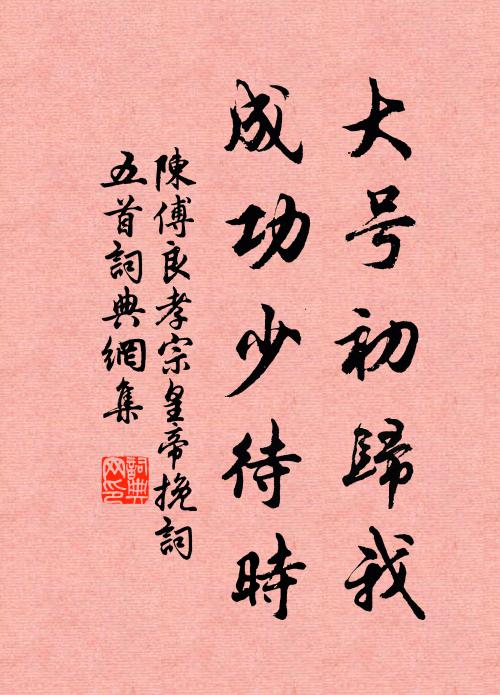 大号初歸我
成功少待時
陳傅良孝宗皇帝挽詞
五首詞典網集
詞典网印